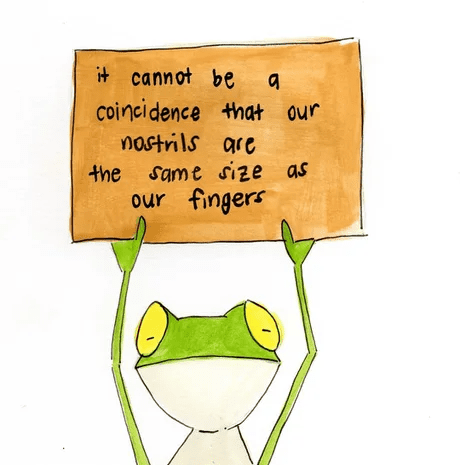 it cannot be a
coincidence that our
nostrils are
the same size as
our fingers